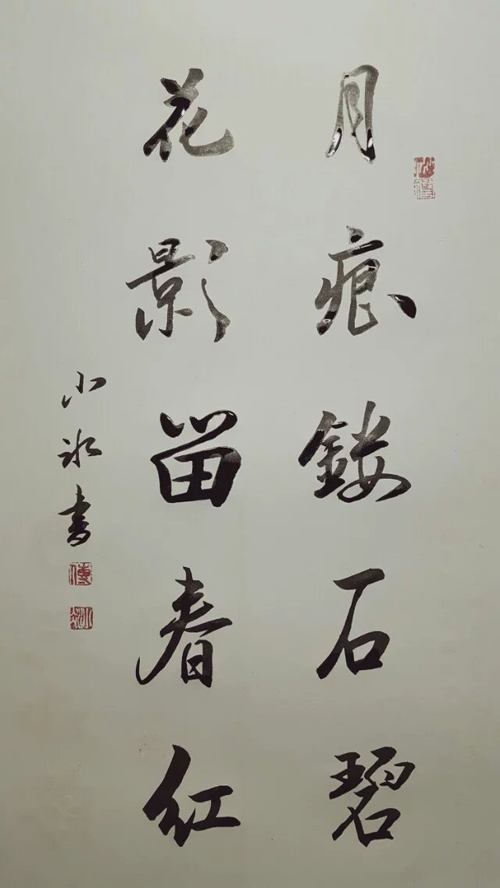 月痕鏤石碧
花影留春红
小冰书